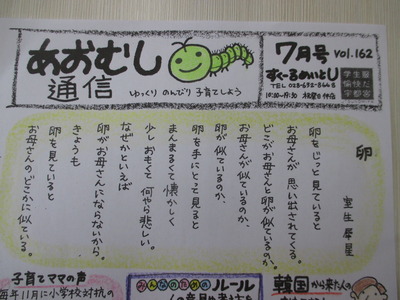 あおむし
通信
ゆっくり のんびり 子育てしよう
7月号 vol.162
すくーるめいとし
学生服
愉快だ
宇都宮
卵
室生犀星
卵をじっと見ていると
お母さんが思い出されてくる。
どこがお母さんと卵が似ているのか、
卵が似ているのか、
お母さんが似ているのか、
卵を手にとって見ると
まんまるくて懐かしく
少しおもくて何やら悲しい。
なぜかといえば
卵がお母さんにならないから。
きょうも
卵を見ていると
お母さんのどこかに似ている。
子育てママの声
毎年11月に小学校対抗の
みんなのための ルール
韓国から来た人の